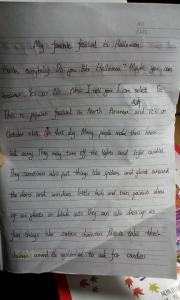 My favorite festival is Halloween
Hello, everybody. Do you like Halloween? Maybe you can
answer Yes or No. Now I tell you I can select Yes
This is popular festival in North America and it's on
October 31st. On that day Many people make their house
look scary They may turn off the lights and light candles.
They sometimes also put things like spiders and ghosts around
the doors and windows. Little kids and even parents dress
up as ghosts or black cats They can also dress up as
fun things like cartoon characters Parents take their
children around the to ask for candies